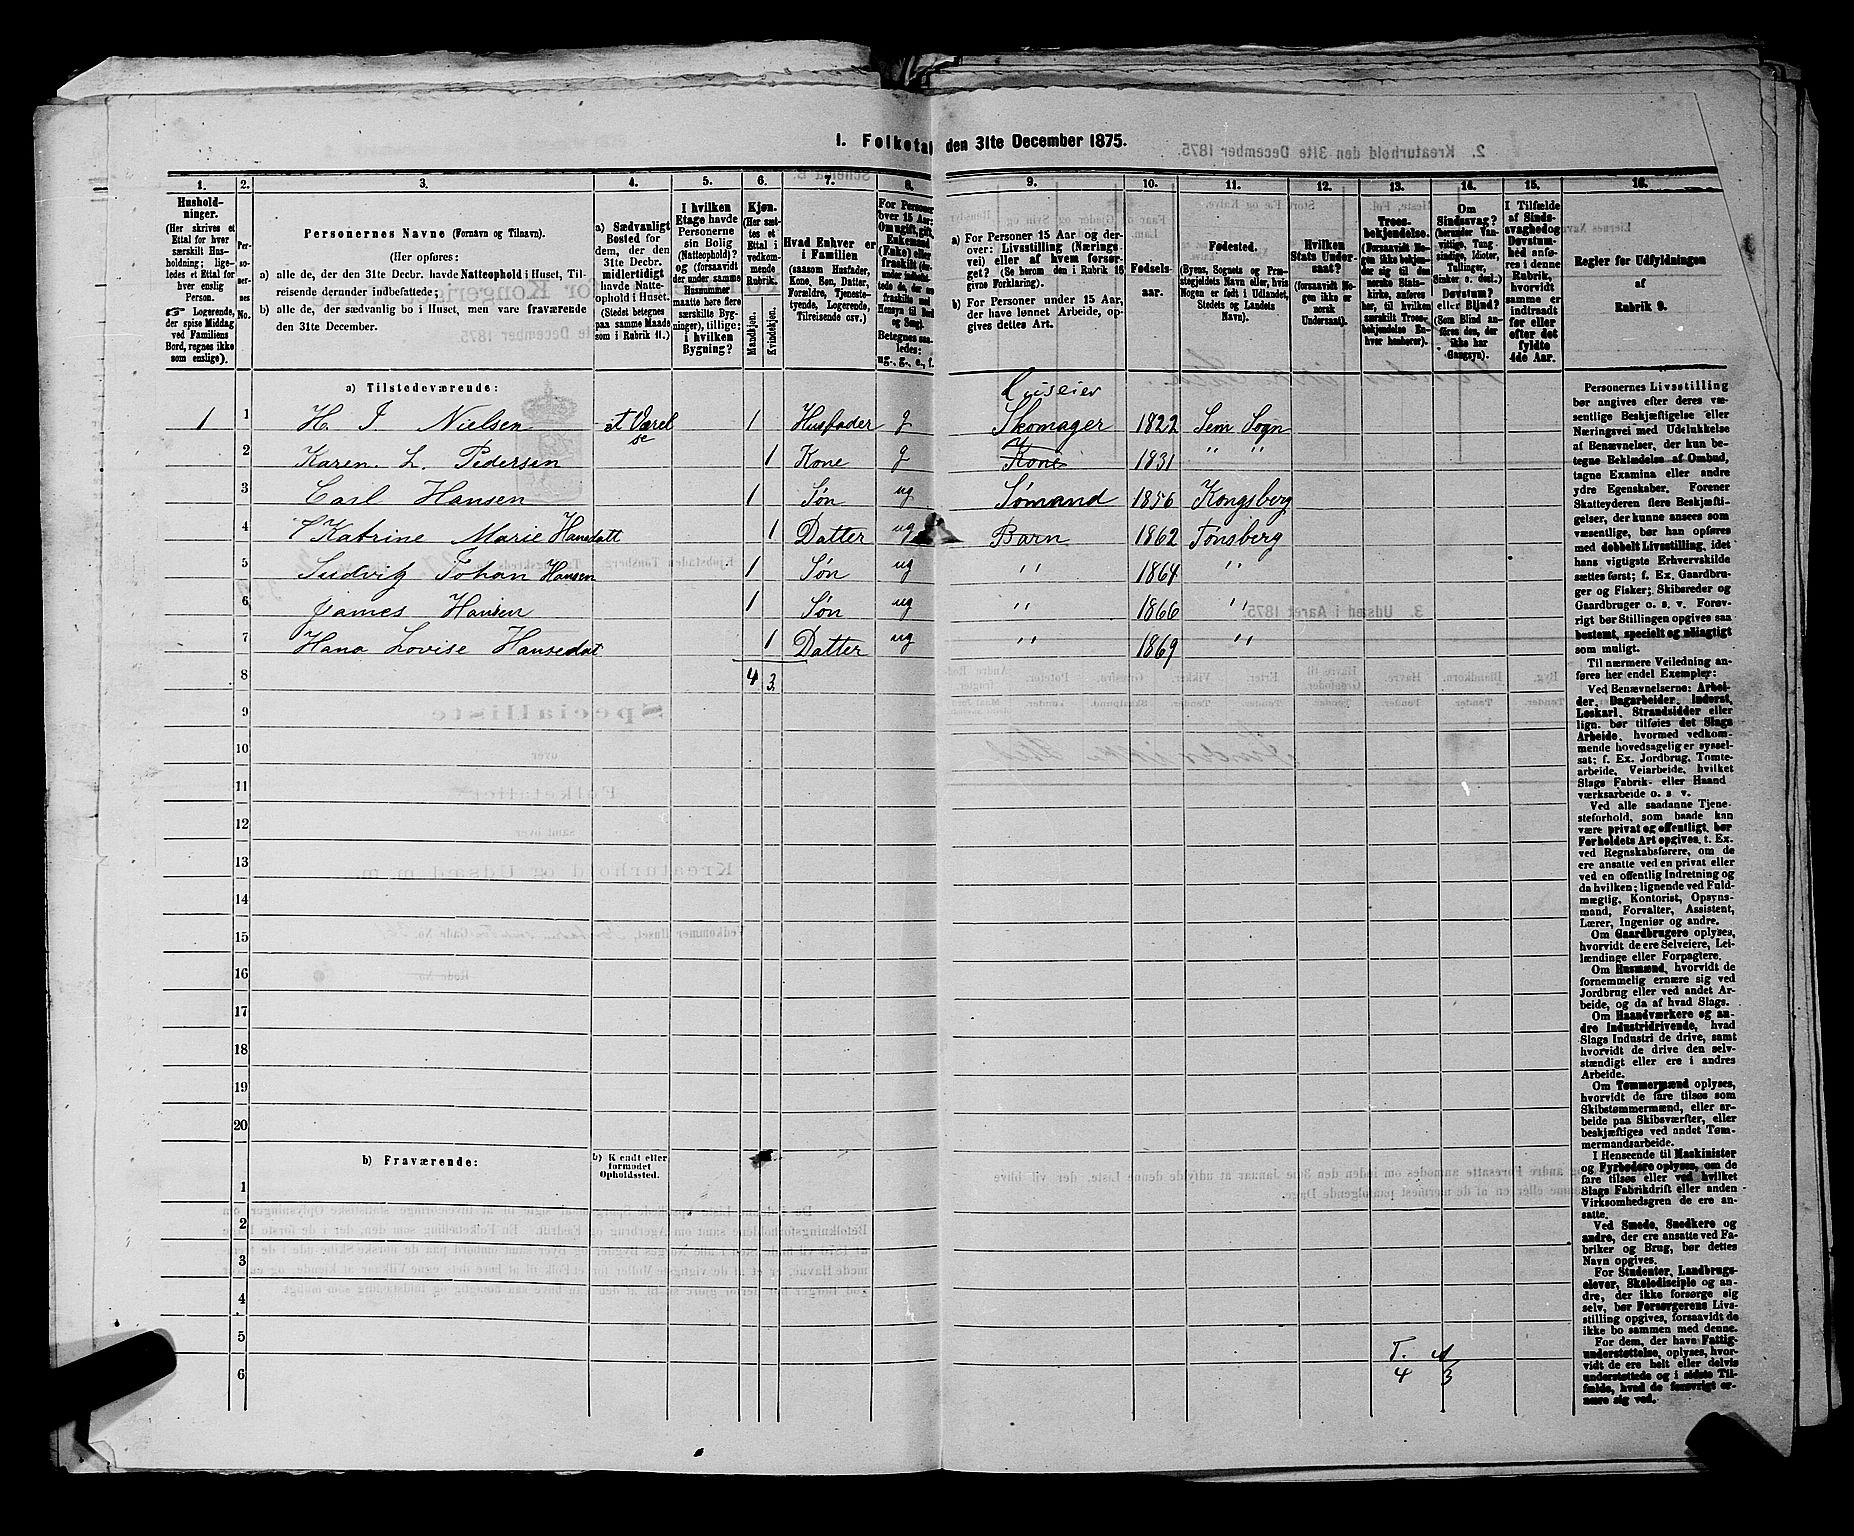 1. Folketal den 31te December 1875.
1. 2. 3. 4. 5. 6. 7. 8. 9. 10. 11. 12. 13. 14. 15. 16.
Hushold-
ninger.
(Her skrives et
Ettal for hver
særskilt Hus-
holdning; lige-
ledes et Ettal for
hver enslig
Person.
Logerende,
der spise Middag
ved Familiens
Bord, regnes ikke
som enslige).
Per-
so-
ner-
nes
No.
Personernes Navne (Fornavn og Tilnavn).
(Her opføres:
a) alle de, der den 31te Decbr. havde Natteophold i Huset, Til-
reisende derunder indbefattede;
b) alle de, der sædvanlig bo i Huset, men vare fraværende
den 31te December.
a) Sædvanligt
Bosted for
dem, der den
31te Decbr.
midlertidigt
havde Natte-
ophold i Huset.
(Stedet betegnes
paa samme Maade
som i Rubrik 11.)
I hvilken
Etage havde
Personerne
sin Bolig
(Natteophold)?
og (forsaavidt
der under samme
Husnummer
maatte høre flere
særskilte Byg-
ninger), tillige:
i hvilken
Bygning?
Kjøn.
(Her sæt-
tes et
Ettal i
vedkom-
mende
Rubrik.
Mandkjøn.
Kvindekjøn.
Hvad Enhver er
i Familien
(saasom Husfader,
Kone, Søn, Datter,
Forældre, Tjeneste-
tyende, Logerende,
Tilreisende osv.)
For Personer
over 15 Aar:
Om ugift, gift,
Enkemand
(Enke) eller
fraskilt
Betegnes saa-
ledes:
ug., g., e., f.
a) For Personer 15 Aar og der-
over: Livsstilling (Nærings-
vei) eller af hvem forsør-
get? (Se herom den i Rubrik 16
givne Forklaring).
b) For Personer under 15 Aar,
der have lønnet Arbeide, op-
gives dettes Art.
Fødsels-
aar.
Fødested.
(Byens, Sognets og Præ-
stegjeldets Navn eller, hvis
Nogen er født i Udlandet,
Stedets og Landets
Navn).
Hvilken
Stats Under-
saat?
(forsaavidt No-
gen ikke er
norsk
Undersaat).
Troes-
bekjendelse.
(Forsaavidt No-
gen ikke bekjen-
der sig til den
norske Stats-
kirke, anføres
her, til hvilken
særskilt Troes-
bekjendelse En-
hver henhører).
Om
Sindssvag?
(herunder Van-
vittige, Tung-
sindige, Idioter,
Tullinger,
Sinker o. desl.)
Døvstum?
eller Blind?
(Som Blind an-
føres den, der
ikke har
Gangsyn).
I Tilfælde
af Sinds-
svaghed og
Døvstum-
hed anfø-
res i denne
Rubrik,
hvorvidt
samme er
indtraadt
før eller
efter det
fyldte
4de Aar.
Regler for Udfyldningen
af
Rubrik 9.
a) Tilstedeværende:
Huseier
1 1 H. I. Nielsen 1 Husfader g Skomager 1822 Sem Sogn
2 Karen L. Pedersen 1 Kone g Kone 1831 " "
3 Carl Hansen 1 Søn ug Sømand 1856 Kongsberg
4 Katrine Marie Hansdatt 1 Datter ug Barn 1862 Tønsberg
5 Ludvig Johan Hansen 1 Søn ug " 1864 "
6 James Hansen 1 Søn ug " 1866 "
7 Hana Lovise Hansedat 1 Datter ug " 1869 "
8 4 3
9
10
11
12
13
14
15
16
17
18
19
20
b) Fraværende:
b) Kjendt eller
formodet
Opholdssted.
1
2
3
4
5
6
T.
4 3
Personernes Livsstilling
bør angives efter deres væ-
sentlige Beskjæftigelse eller
Næringsvei med Udelukkelse
af Benævnelser, der kun be-
tegne Beklædelse af Ombud,
tagne Examina eller andre
ydre Egenskaber. Forener
Skatteyderen flere Beskjæfti-
gelser, der kunne ansees som
væsentlige, bør han opføres
med dobbelt Livsstilling, idet
hans vigtigste Erhvervskilde
sættes først; f. Ex. Gaardbru-
ger og Fisker; Skibsreder og
Gaardbruger o. s. v. Forøv-
rigt bør Stillingen opgives saa
bestemt, specielt og nøiagtigt
som muligt.
Til nærmere Veiledning an-
føres her endel Exempler:
Ved Benævnelserne: Arbei-
der, Dagarbeider, Inderst,
Løskarl, Strandsidder eller
lign. bør tilføies det Slags
Arbeide, hvormed vedkom-
mende hovedsagelig er syssel-
sat; f. Ex. Jordbrug, Tomte-
arbeide, Veiarbeide, hvilket
Slags Fabrik- eller Haand
værksarbeide o. s. v.
Ved alle saadanne Tjene-
steforhold, som baade kan
være privat og offentligt, bør
Forholdets Art opgives, t. Ex.
ved Regnskabsførere, om de
ere ansatte ved en privat eller
ved en offentlig Indretning og
da hvilken; lignende ved Fuld-
mægtig, Kontorist, Opsyns-
mand, Forvalter, Assistent,
Lærer, Ingeniør og andre.
Om Gaardbrugere oplyses,
hvorvidt de ere Selveiere, Lei-
lændinge eller Forpagtere.
Om Husmænd, hvorvidt de
fornemmelig ernære sig ved
Jordbrug eller ved andet Ar-
beide, og da af hvad Slags.
Om Haandværkere og an-
dre Industridrivende, hvad
Slags Industri de drive, samt
hvorvidt de drive den selv-
stændigt eller ere i andres
Arbeide.
Om Tømmermænd oplyses,
hvorvidt de fare tilsøs som
Skibstømmermænd, eller ar-
beide paa Skibsværfter, eller
beskjæftiges ved andet Tøm-
mermandsarbeide.
I Henseende til Maskinister
og Fyrbødere oplyses, om de
fare tilsøs eller ved hvilket
Slags Fabrikdrift eller anden
Virksomhedsgren de ere an-
satte.
Ved Smede, Snedkere og
andre, der ere ansatte ved Fa-
briker og Brug, bør dettes
Navn opgives.
For Studenter, Landbrugs-
elever, Skoledisciple og an-
dre, der ikke forsørge sig
selv, bør Forsørgerens Livs-
stilling opgives, forsaavidt de
ikke bo sammen med denne.
For dem, der have Fattig-
understøttelse, oplyses, hvor-
vidt de ere helt eller delvis
understøttede og i sidste Til-
fælde, hvad de forøvrigt er-
nære sig ved.